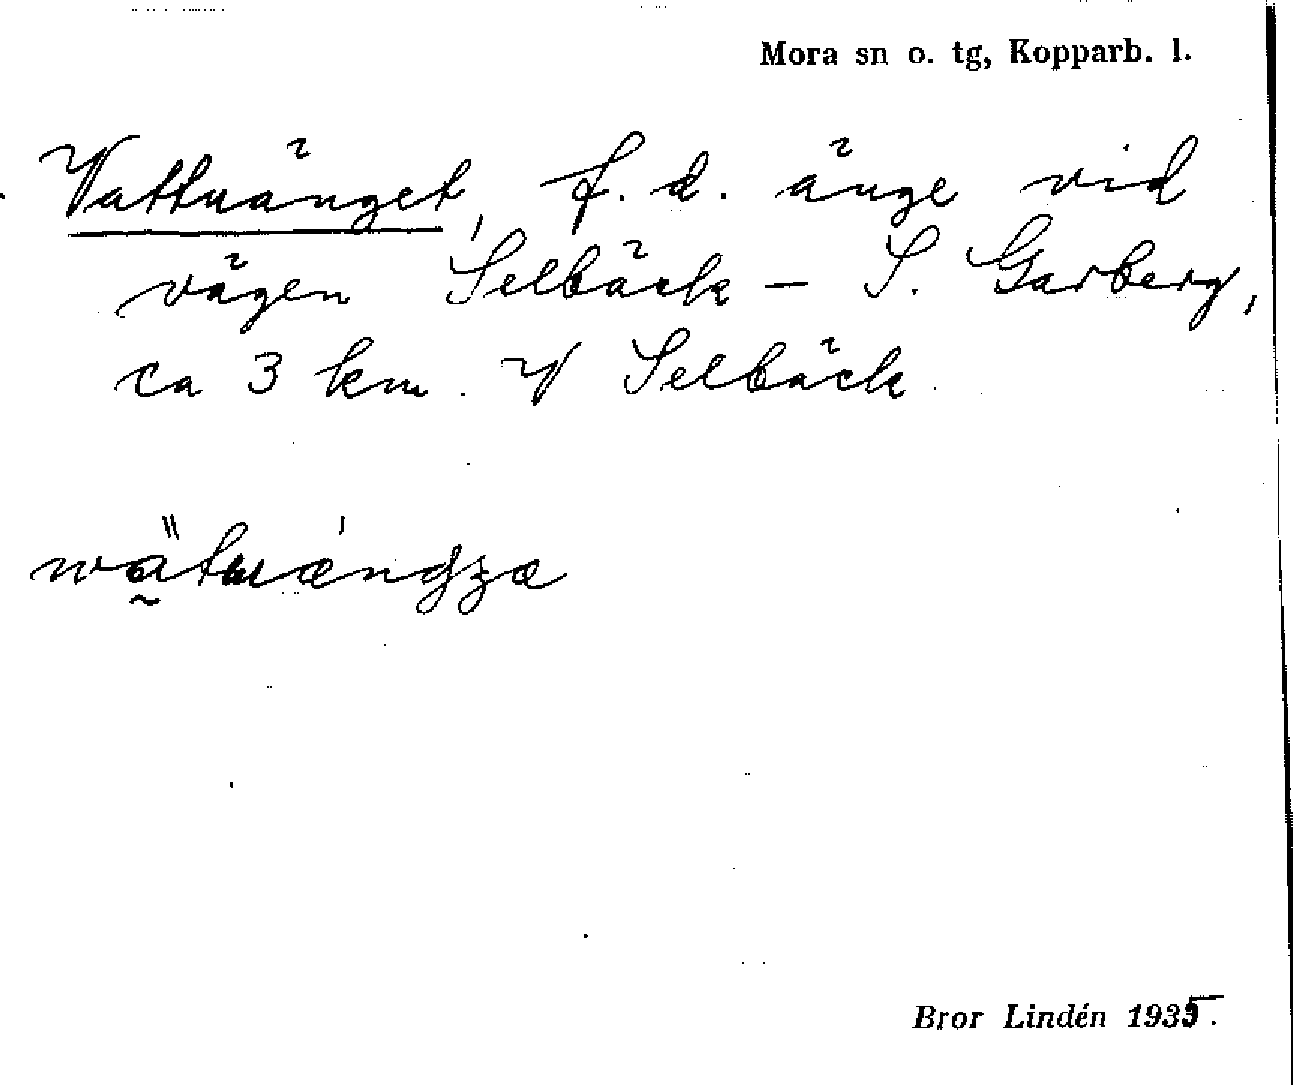 Mora sn o. tg, Kopparb. l.
Vattnänget, f. d. änge vid
vägen Selbäck – S. Garberg,
ca 3 km. V Selbäck.
Bror Lindén 1935.